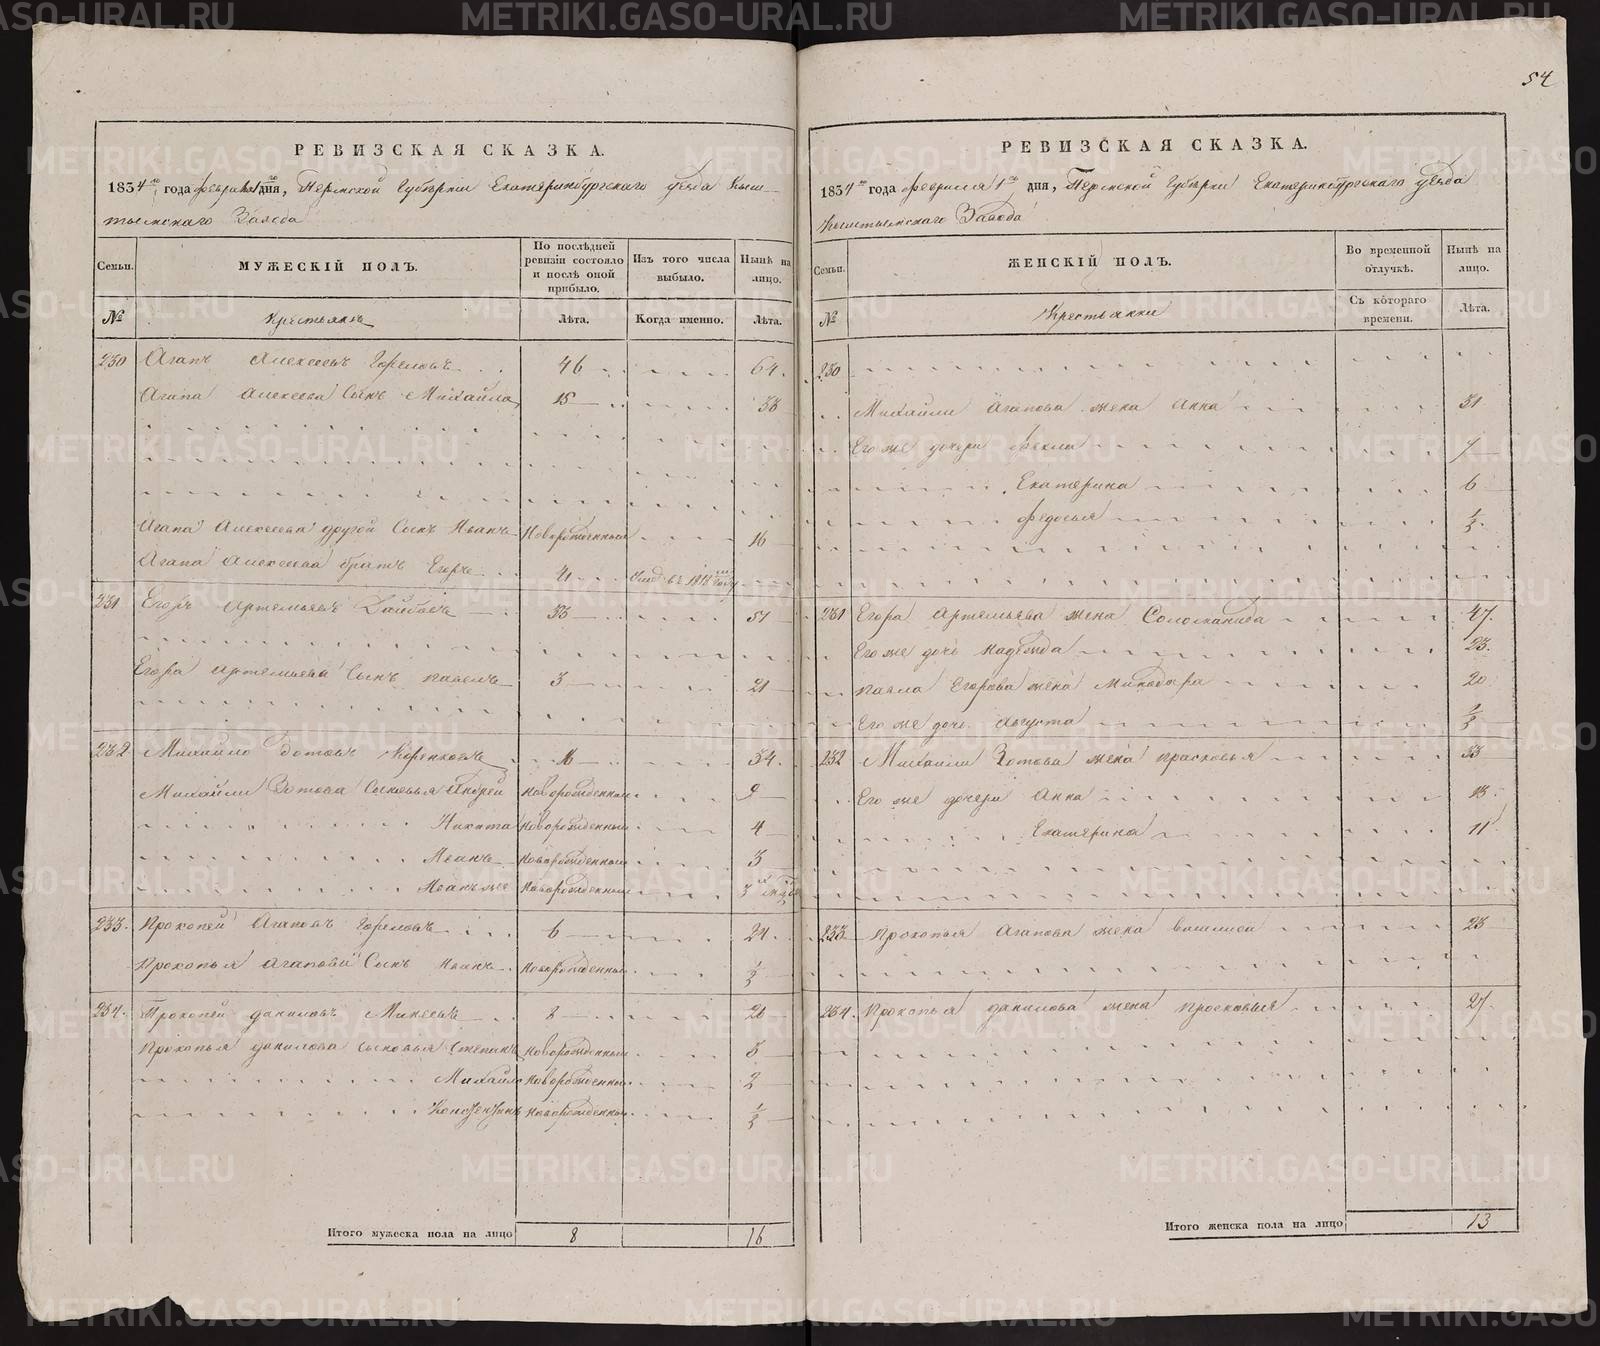 54
РЕВИЗСКАЯ СКАЗКА.
1834 го года февраля 1 го дня, Пермской Губернiи Екатеринбургскаго уезда Кыш-
тымскаго Завода
Семьи.
МУЖЕСКIЙ ПОЛЪ.
По послѣдней ревизiи состояло и послѣ оной прибыло.
Изъ того числа выбыло.
Нынѣ на лицо.
№
Крестьянъ
Лѣта.
Когда именно.
Лѣта.
230 Агапъ Алексеевъ Гореловъ 46 64.
Агапа Алексеева Сынъ Михайла 15 33
Агапа Алексеева другой Сынъ Иванъ Новорожденный 16
Агапа Алексеева братъ Егоръ 21 въ 1818 году
231 Егоръ Артемьевъ 33 51
Егора Артемьева Сынъ Павелъ 3 21
232 Михайло Зотовъ 16 34.
Михайли Зотова Сыновья Андрей Новорожденный 9
Никита Новорожденный 4
Иванъ Новорожденный 3
Иванъ же Новорожденный 3
233. Прокопей Агаповъ Гореловъ 6 24.
Прокопья Агапова Сынъ Иванъ Новорожденный 1/2
234. Прокопей Даниловъ Минеевъ 8 26
Прокопья Данилова Сыновья Степанъ Новорожденный 3
Михайло Новорожденный 2
Новорожденный 1/2
Итого мужеска пола на лицо 8 16
РЕВИЗСКАЯ СКАЗКА.
1834 го года февраля 1 го дня, Пермской Губернiи Екатеринбургскаго уезда
Кыштымскаго Завода
Семьи.
ЖЕНСКIЙ ПОЛЪ.
Во временной отлучкѣ.
Нынѣ на лицо.
№
Крестьянки
Съ котораго времени.
Лѣта.
230
Михайли Агапова жена Анна 31
Его же дочери Фекла 7
Екатерина 6
Федосья 1/2.
231 Егора Артемьева жена Соломанида 47.
Его же дочь Надежда 23.
Павла Егорова жена Минодора 20
Его же дочь Августа 1/2
232 Михайли Зотова жена Прасковья 33
Его же дочери Анна 13.
Екатерина 11
233 Прокопья Агапова жена Василиса 23
234. Прокопья Данилова жена Просковья 27.
Итого женска пола на лицо 13